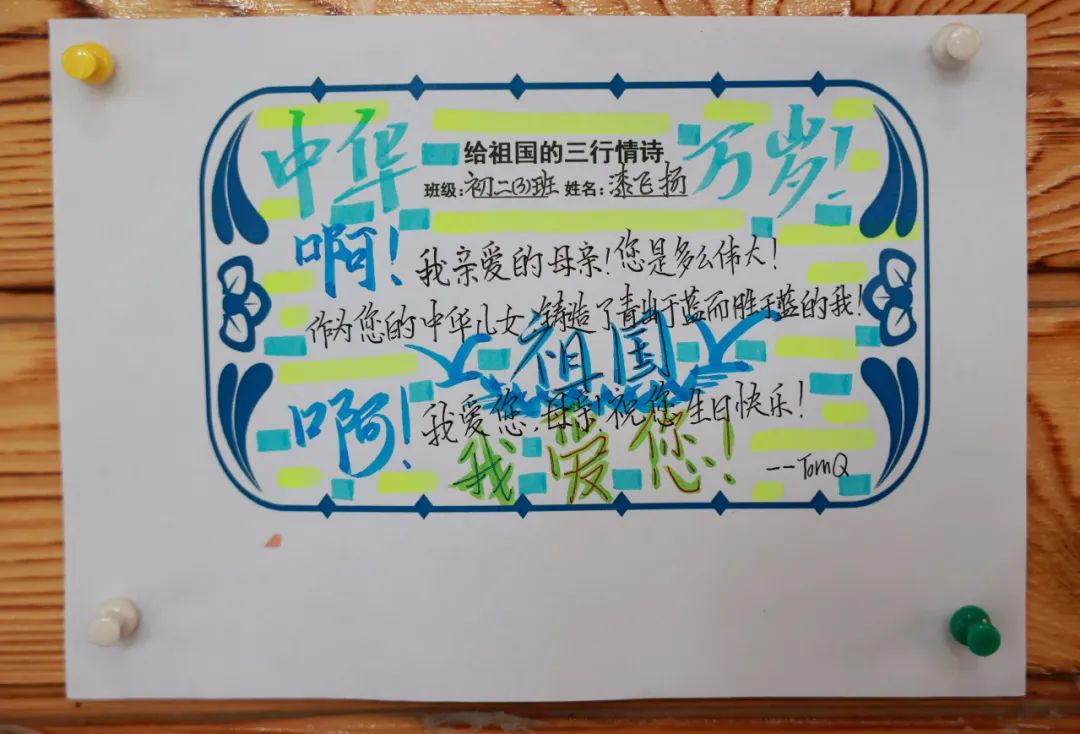 中华 万岁!
给祖国的三行情诗
班级:初二(3)班 姓名:漆飞扬
啊!我亲爱的母亲!您是多么伟大!
作为您的中华儿女,铸造了青出于蓝而胜于蓝的我!
祖国
啊!我爱您,母亲!祝您生日快乐!
我爱您!
--TomQ